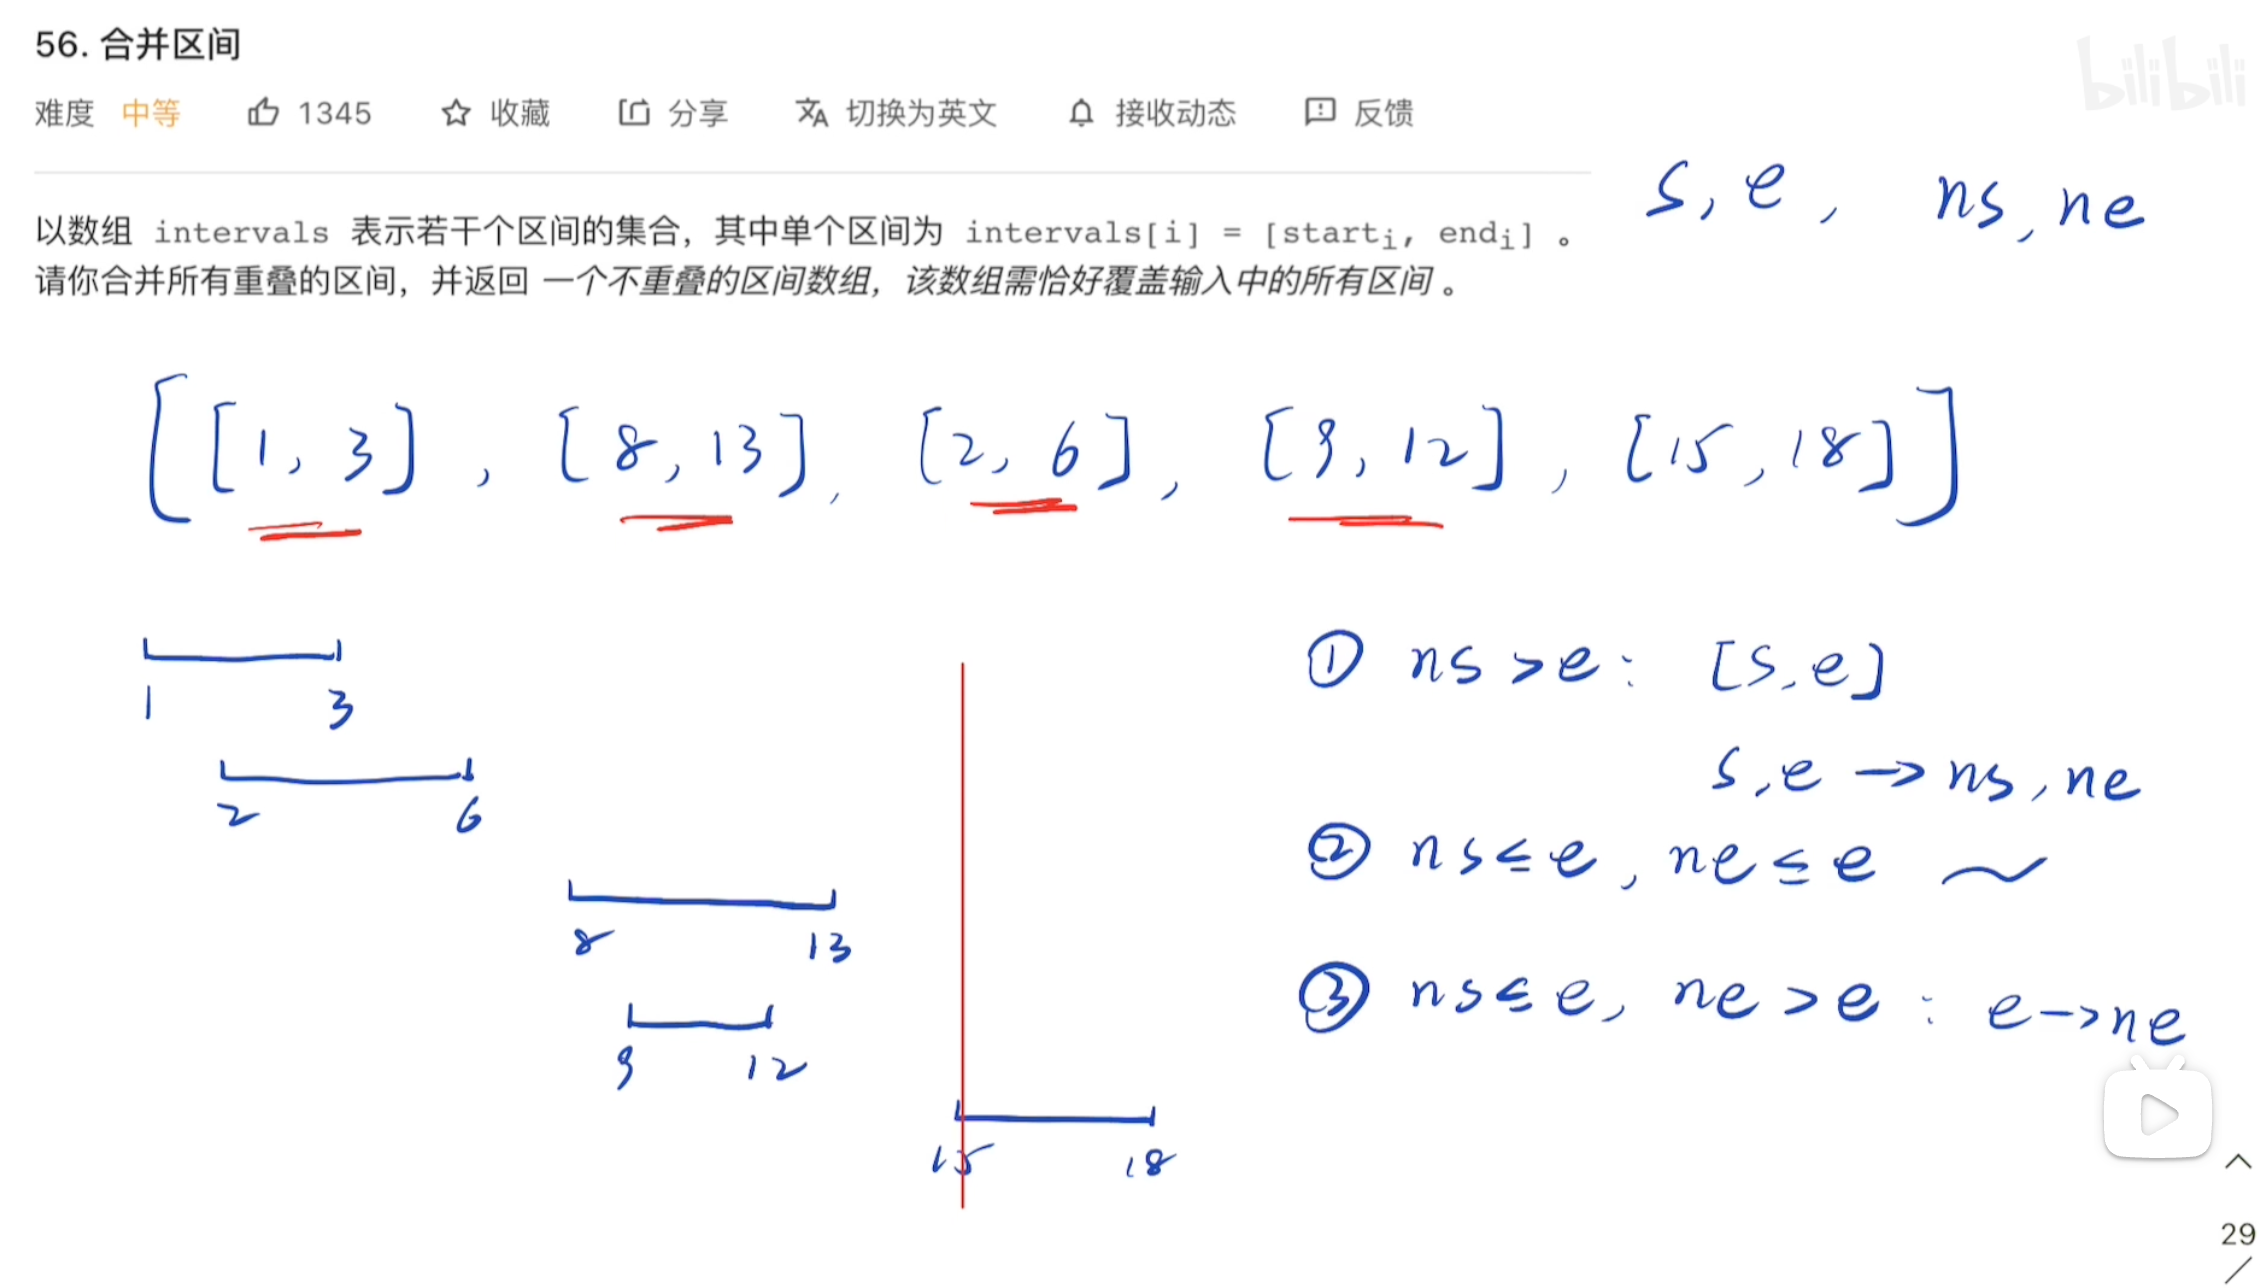 56. 合并区间
bilibili
难度 中等 1345 收藏 分享 切换为英文 接收动态 反馈
s, e, ns, ne
以数组 intervals 表示若干个区间的集合，其中单个区间为 intervals[i] = [starti, endi] 。
请你合并所有重叠的区间，并返回 一个不重叠的区间数组，该数组需恰好覆盖输入中的所有区间 。
[[1, 3], [8, 13], [2, 6], [9, 12], [15, 18]]
1 3
2 6
8 13
9 12
15 18
① ns > e : [s, e]
s, e → ns, ne
② ns ≤ e, ne ≤ e ~
③ ns ≤ e, ne > e : e → ne
29
/